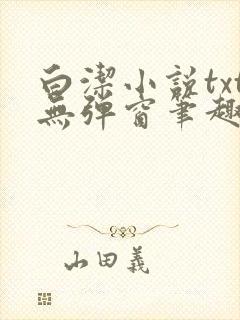 白潔小説txt
無弹窗笔趣
山田義